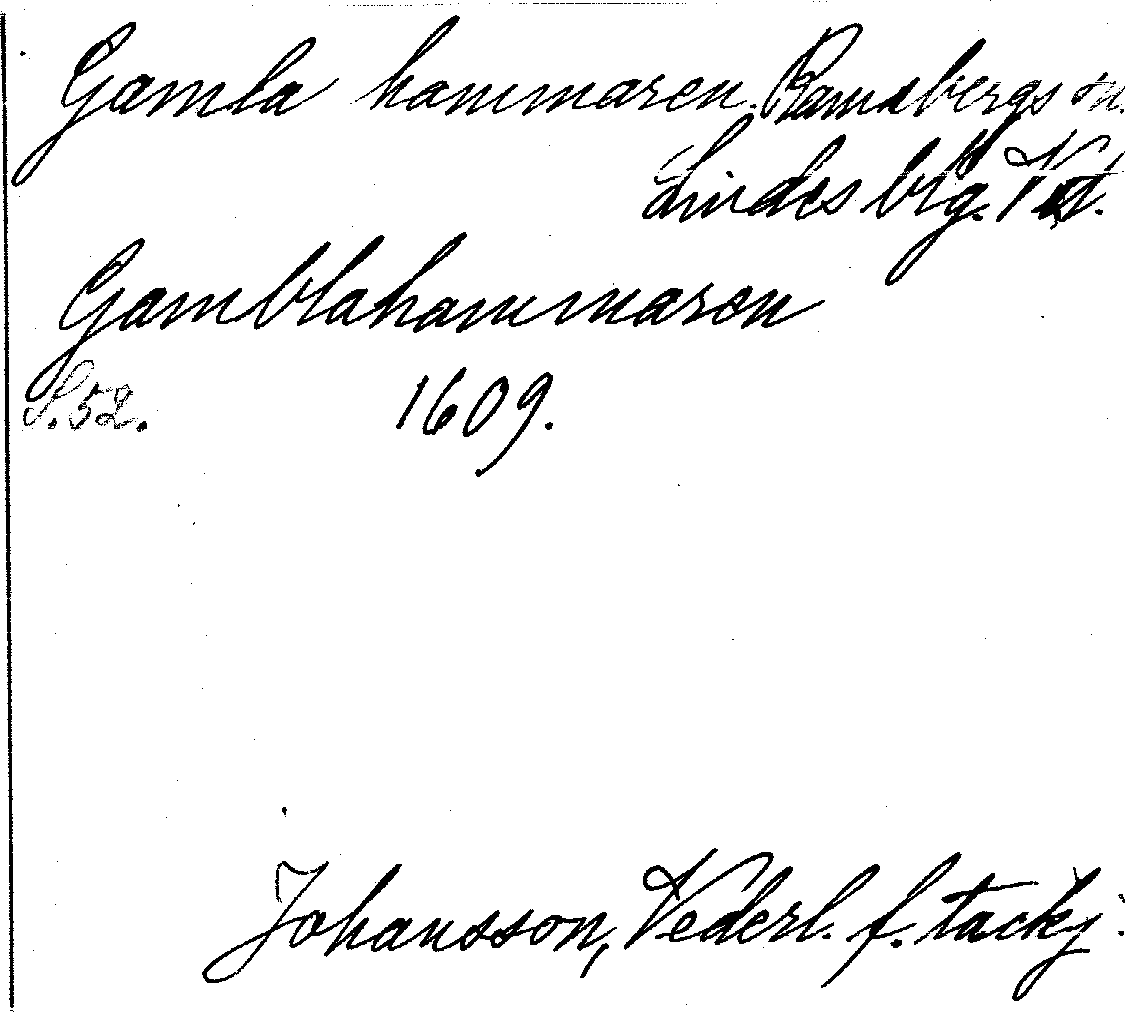 Gamla hammaren. Ramsbergs sn.
Lindes brg. Vst.
Gamblahammaren
S. 52. 1609.
Johansson, Vederl. f. tackj.